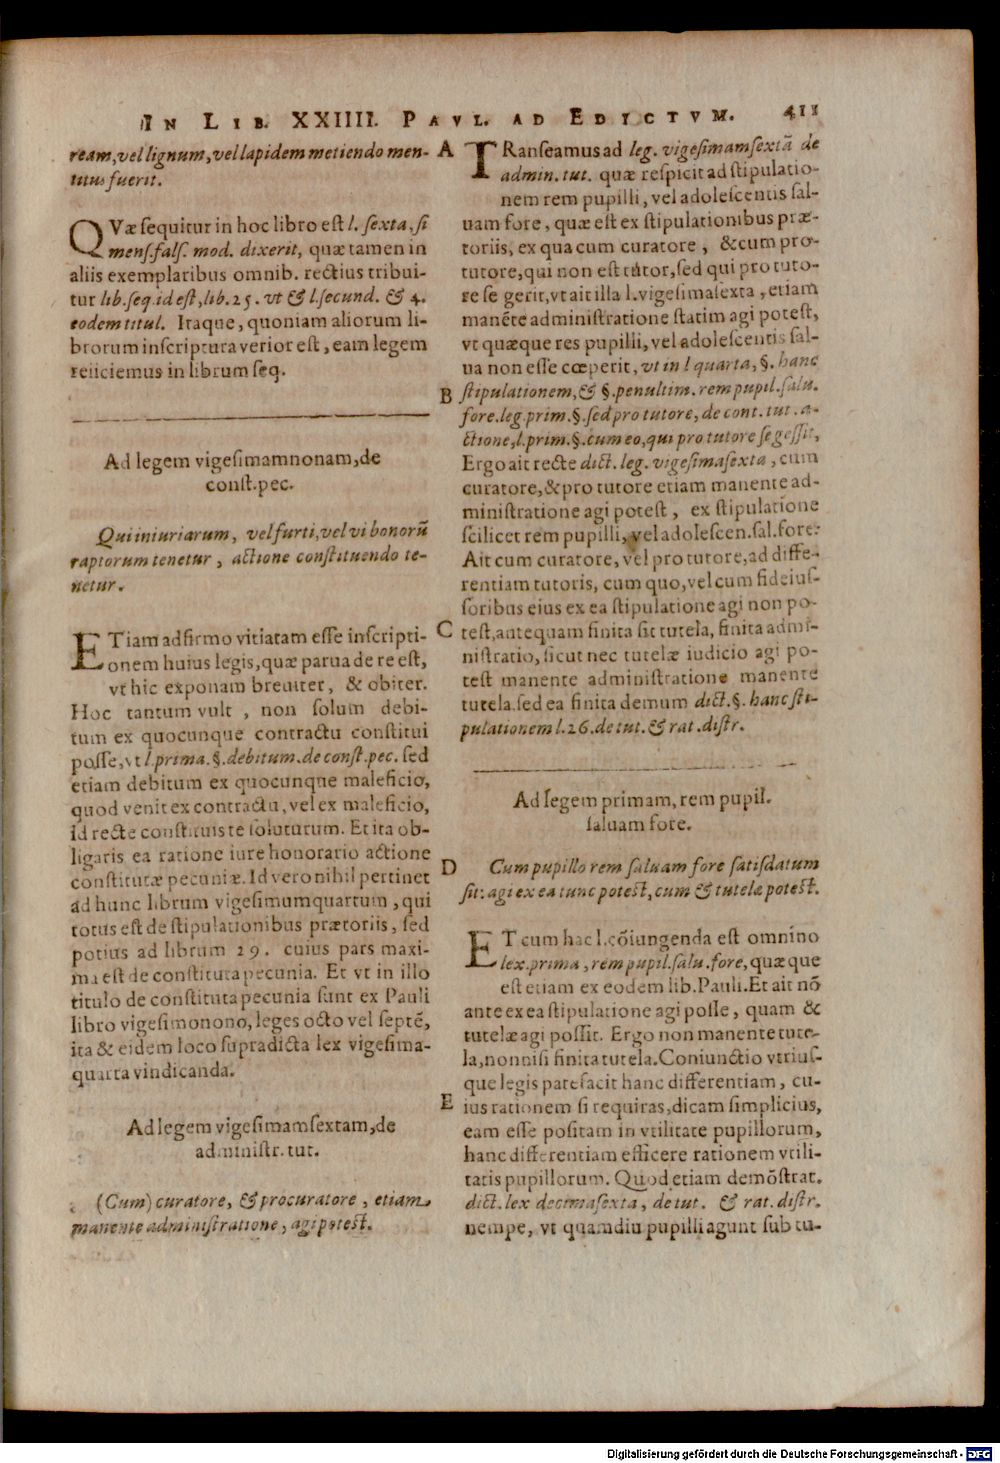 IN LIB. XXIIII. PAVL. AD EDICTVM. 411
ream, vel lignum, vel lapidem metiendo men-
titus fuerit.
QVæ sequitur in hoc libro est l. sexta, si
mens. fals. mod. dixerit, quæ tamen in
aliis exemplaribus omnib. rectius tribui-
tur lib. seq. id est, lib. 25. vt & l. secund. & 4.
eodem titul. Itaque, quoniam aliorum li-
brorum inscriptura verior est, eam legem
reiiciemus in librum seq.
Ad legem vigesimamnonam, de
const. pec.
Qui iniuriarum, vel furti, vel vi bonorū
raptorum tenetur, actione constituendo te-
netur.
ETiam adfirmo vitiatam esse inscripti-
onem huius legis, quæ parua de re est,
vt hic exponam breuiter, & obiter.
Hoc tantum vult, non solum debi-
tum ex quocunque contractu constitui
posse, vt l. prima. §. debitum. de const. pec. sed
etiam debitum ex quocunque maleficio,
quod venit ex contractu, vel ex maleficio,
id recte constituis te soluturum. Et ita ob-
ligaris ea ratione iure honorario actione
constitutæ pecuniæ. Id vero nihil pertinet
ad hunc librum vigesimumquartum, qui
totus est de stipulationibus prætoriis, sed
potius ad librum 29. cuius pars maxi-
ma est de constituta pecunia. Et vt in illo
titulo de constituta pecunia sunt ex Pauli
libro vigesimonono, leges octo vel septē,
ita & eidem loco supradicta lex vigesima-
quarta vindicanda.
Ad legem vigesimamsextam, de
administr. tut.
(Cum) curatore, & procuratore, etiam
manente administratione, agi potest.
A TRanseamus ad leg. vigesimamsextā de
admin. tut. quæ respicit ad stipulatio-
nem rem pupilli, vel adolescentis sal-
uam fore, quæ est ex stipulationibus præ-
toriis, ex qua cum curatore, & cum pro-
tutore, qui non est tutor, sed qui pro tuto-
re se gerit, vt ait illa l. vigesimasexta, etiam
manēte administratione statim agi potest,
vt quæque res pupilli, vel adolescentis sal-
ua non esse cœperit, vt in l quarta, §. hanc
B stipulationem, & §. penultim. rem pupil. salu.
fore. leg. prim. §. sed pro tutore, de cont. tut. a-
ctione, l. prim. §. cum eo, qui pro tutore se gessit,
Ergo ait recte dict. leg. vigesimasexta, cum
curatore, & pro tutore etiam manente ad-
ministratione agi potest, ex stipulatione
scilicet rem pupilli, vel adolescen. sal. fore:
Ait cum curatore, vel pro tutore, ad diffe-
rentiam tutoris, cum quo, vel cum fideius-
soribus eius ex ea stipulatione agi non po-
C test, antequam finita sit tutela, finita admi-
nistratio, sicut nec tutelæ iudicio agi po-
test manente administratione manente
tutela. sed ea finita demum dict. §. hanc sti-
pulationem l. 26. de tut. & rat. distr.
Ad legem primam, rem pupil.
saluam fore.
D Cum pupillo rem saluam fore satisdatum
sit: agi ex ea tunc potest, cum & tutelæ potest.
ET cum hac l. cōiungenda est omnino
lex. prima, rem pupil. salu. fore, quæ que
est etiam ex eodem lib. Pauli. Et ait nō
ante ex ea stipulatione agi posse, quam &
tutelæ agi possit. Ergo non manente tute-
la, non nisi finita tutela. Coniunctio vtrius-
que legis patefacit hanc differentiam, cu-
E ius rationem si requiras, dicam simplicius,
eam esse positam in vtilitate pupillorum,
hanc differentiam efficere rationem vtili-
tatis pupillorum. Quod etiam demōstrat.
dict. lex decimasexta, de tut. & rat. distr.
nempe, vt quamdiu pupilli agunt sub tu-
Digitalisierung gefördert durch die Deutsche Forschungsgemeinschaft - DFG